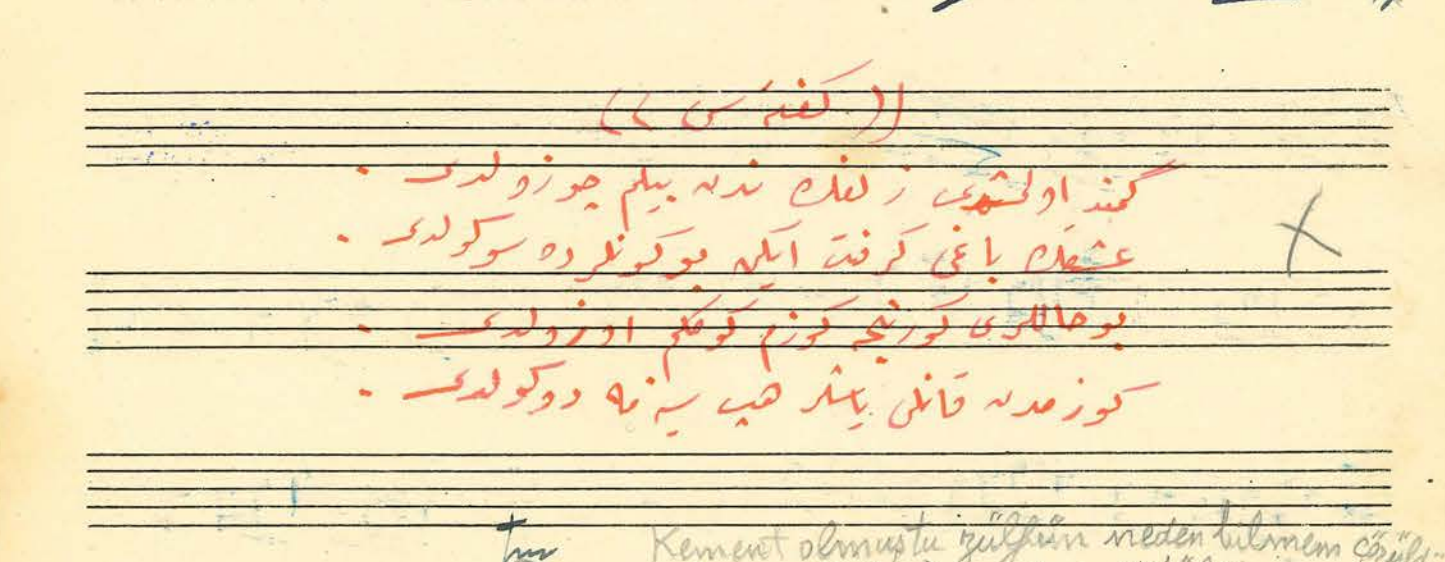 (( كفته سی ))
كمند اولمشدی زلفك ندن بیلم چوزولدی .
عشقك باغی كرفت ایكن بوكونلرده سوكولدی .
بو حاللری كورنیجه كوزم كوكلم اوزولدی .
كوزمدن قانلی یاشلر هپ سینه مه دوكولدی .
Kement olmuştu zülfün neden bilmem çözüldü